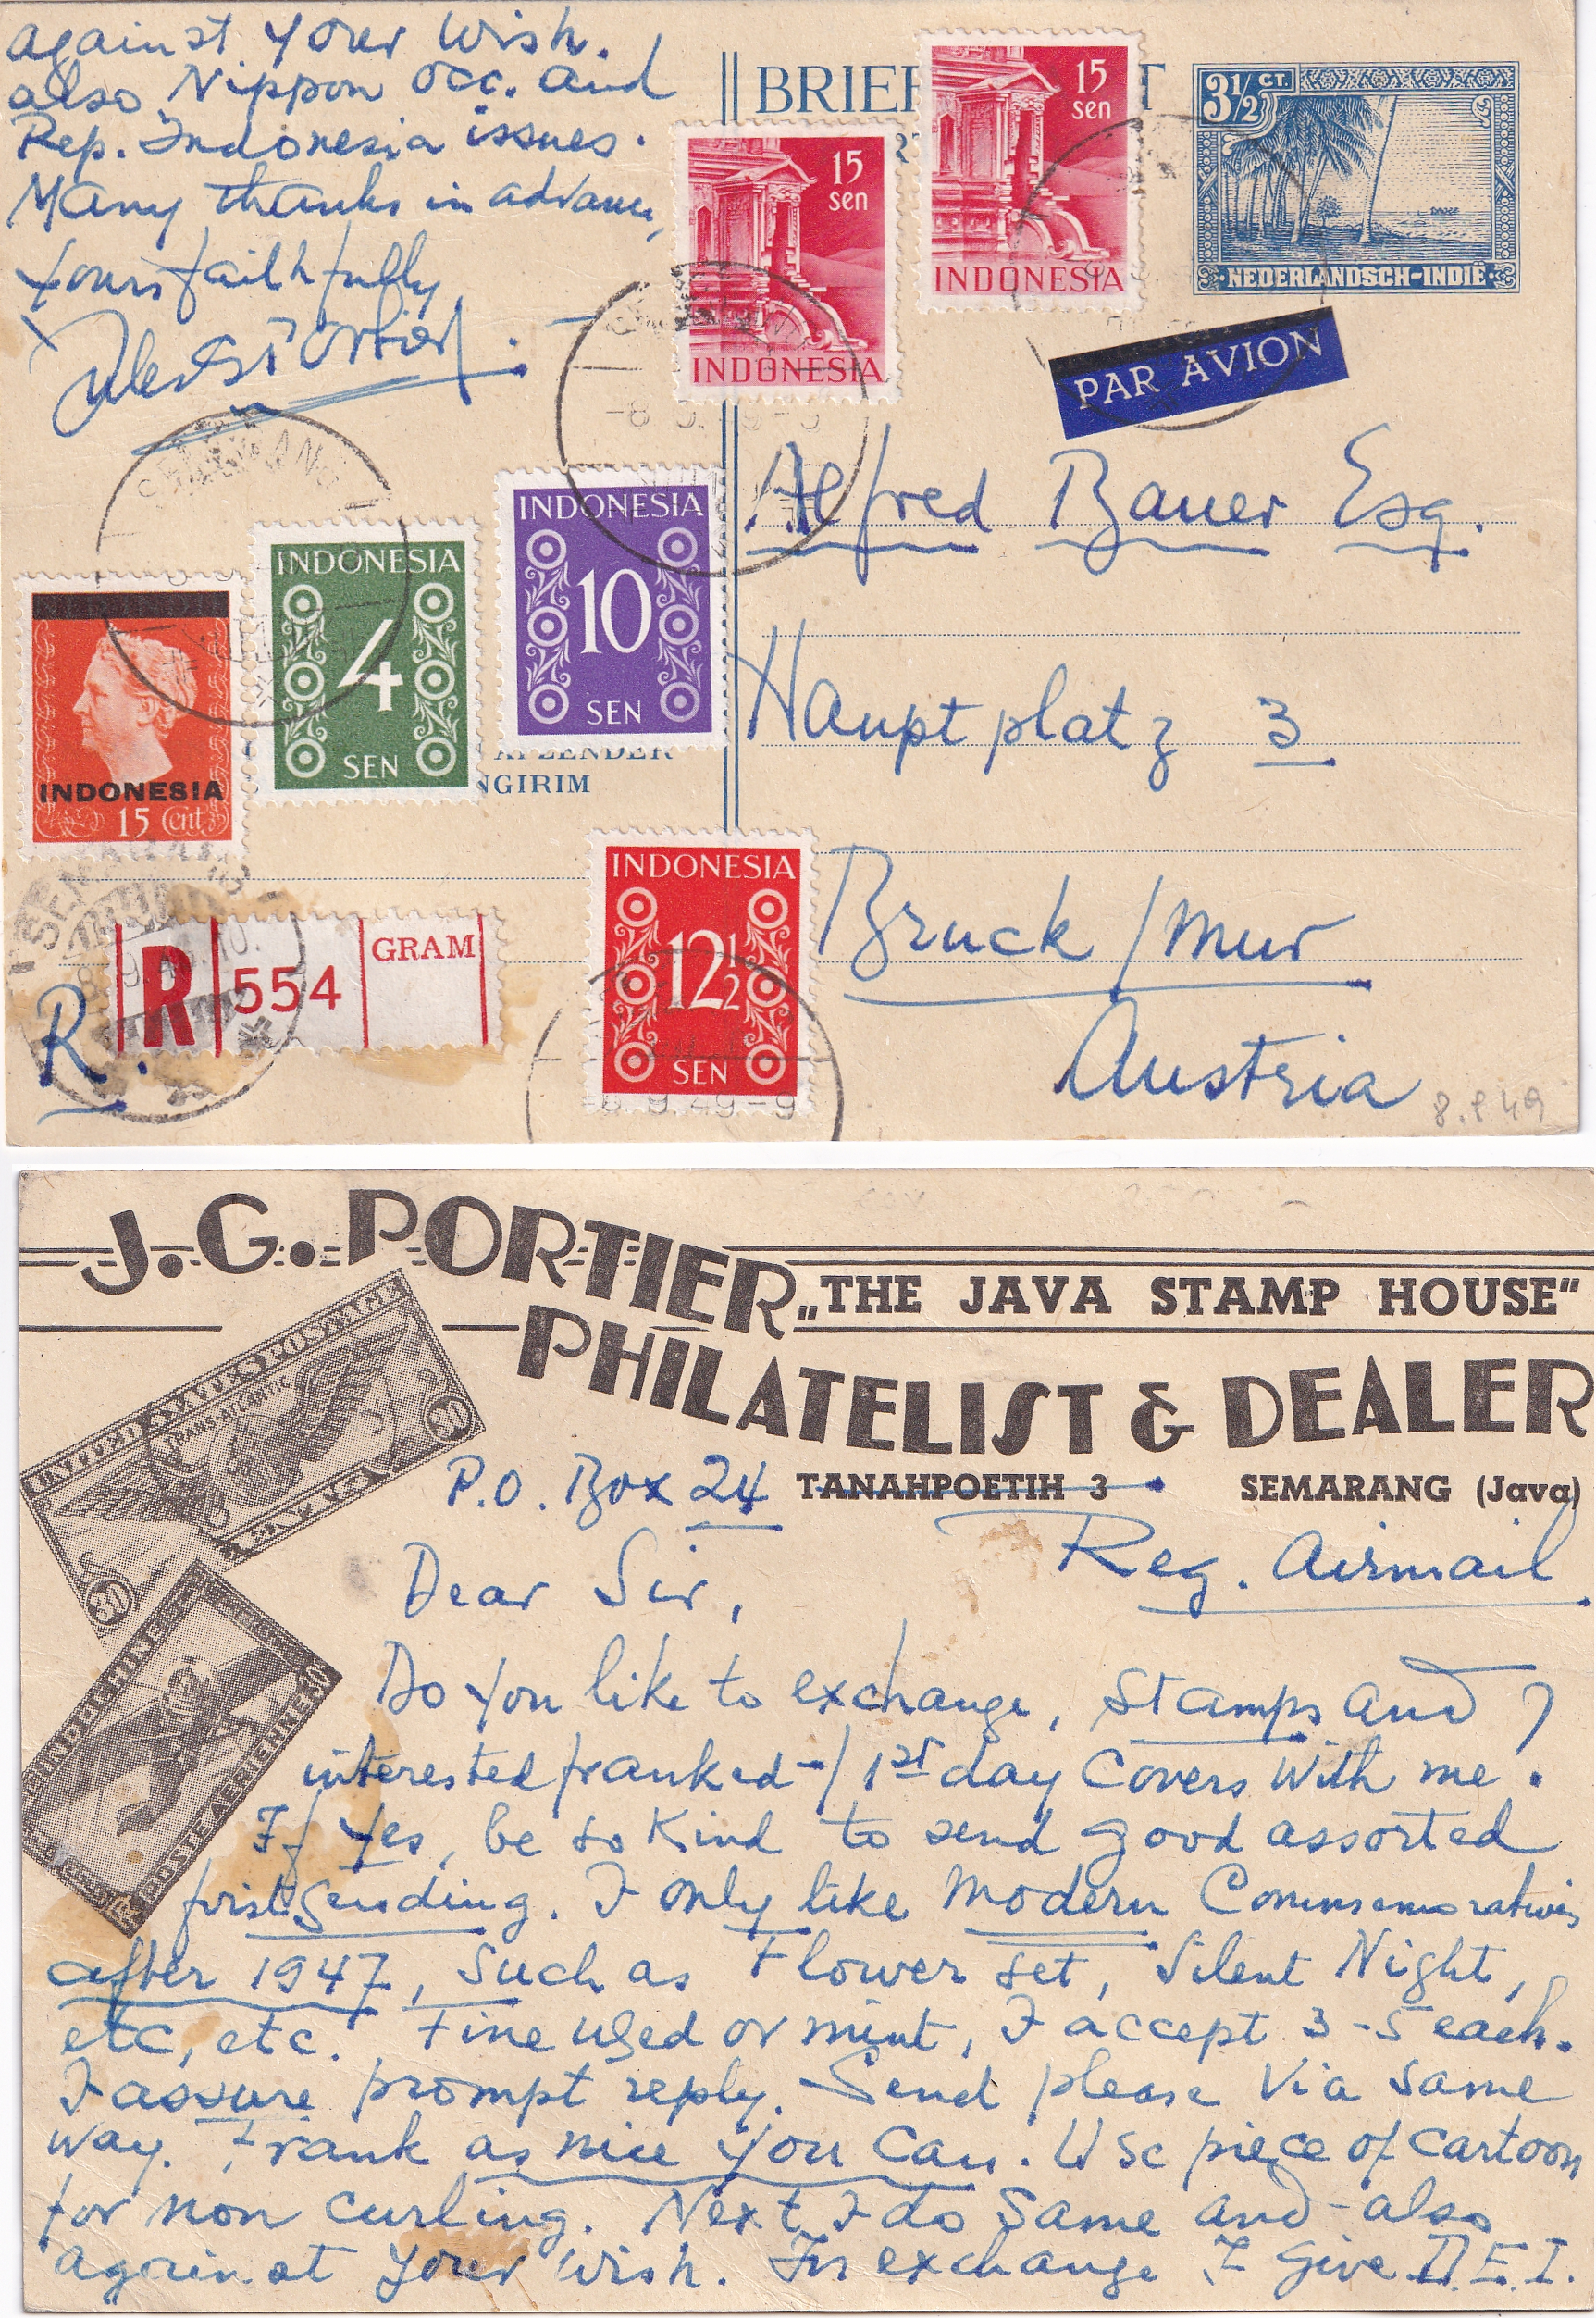 against your wish.
also Nippon occ. and
Rep. Indonesia issues.
Many thanks in advance,
Yours faithfully
BRIEF
T
15
sen
INDONESIA
15
sen
INDONESIA
3½ CT.
NEDERLANDSCH-INDIË
PAR AVION
Alfred Bauer Esq.
Hauptplatz 3
Bruck/Mur
Austria
8.9.49
INDONESIA
15 Cent
INDONESIA
4
SEN
INDONESIA
10
SEN
AFZENDER
NGIRIM
INDONESIA
12½
SEN
8.9.49-9
SEMARANG
R 554 GRAM
R.
J.G. PORTIER „THE JAVA STAMP HOUSE"
PHILATELIST & DEALER
P.O. Box 24 TANAHPOETIH 3 SEMARANG (Java)
UNITED STATES POSTAGE
TRANS-ATLANTIC
30
30
INDOCHINE
POSTE AERIENNE
Reg. Airmail
Dear Sir,
Do you like to exchange, stamps and
interested franked-/1st day covers with me.
If Yes, be so kind to send good assorted
first sending. I only like modern Commemoratives
after 1947, such as Flower set, Silent Night,
etc, etc. Fine used or mint, I accept 3-5 each.
I assure prompt reply. Send please via same
way. Frank as nice you can. Use piece of cartoon
for non curling. Next I do same and also
against your wish. In exchange I give D.E.I.